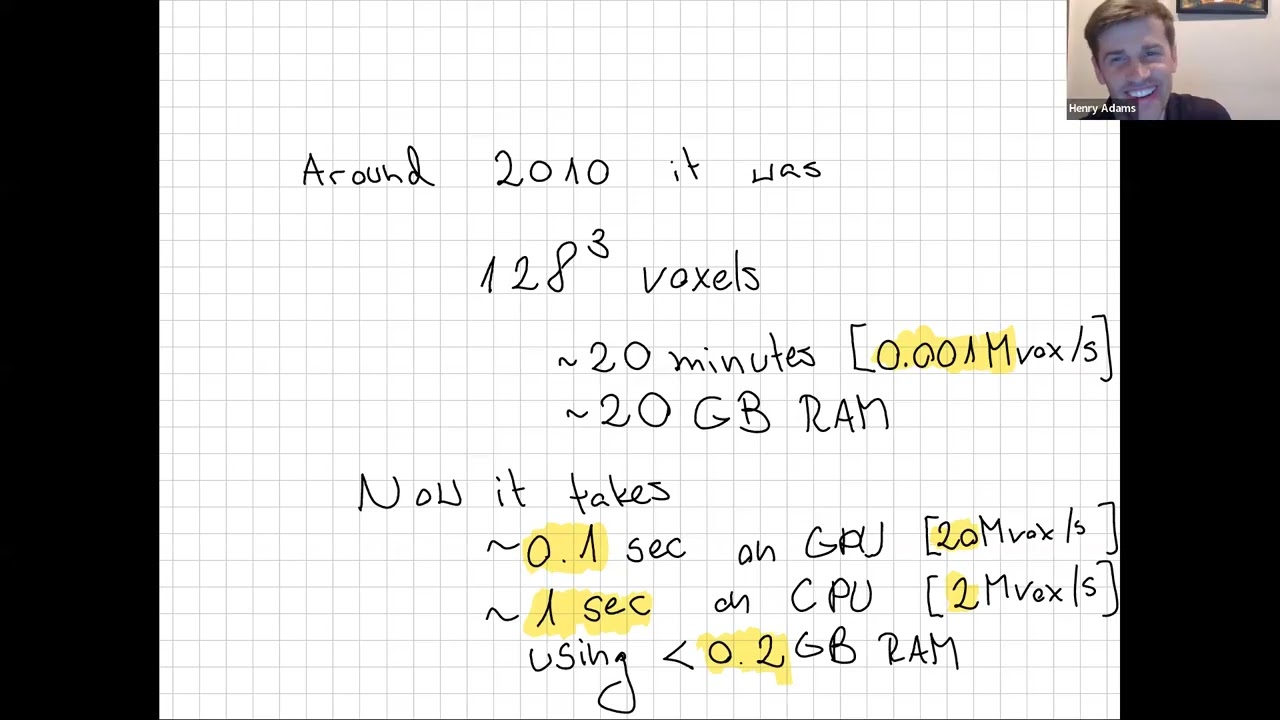 Henry Adams
Around 2010 it was
128³ voxels
~20 minutes [0.001Mvox/s]
~20 GB RAM
Now it takes
~0.1 sec on GPU [20Mvox/s]
~1 sec on CPU [2Mvox/s]
using < 0.2 GB RAM